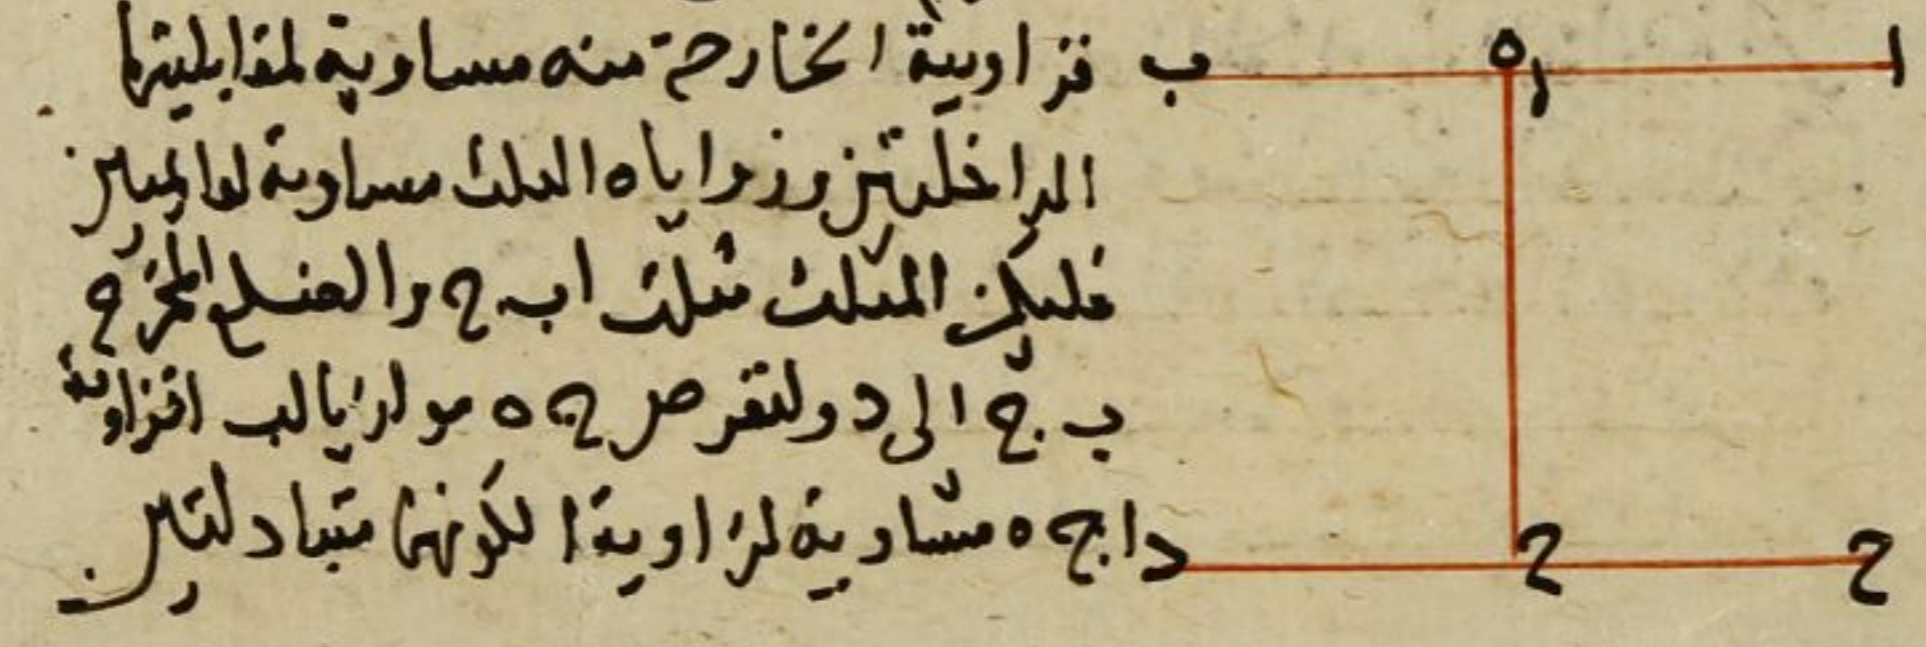 فزاوية الخارجة منه مساوية لمقابلتيها
الداخلتين وزواياه الثلث مساوية لقائمتين
فليكن المثلث مثلث اب ج والضلع المخرج
ب ج الى د ولنفرض ج ه موازيا لب ا فزاوية
ا ج ه مساوية لزاوية ا لكونهما متبادلتين
ا
ه
ب
ح
ح
د